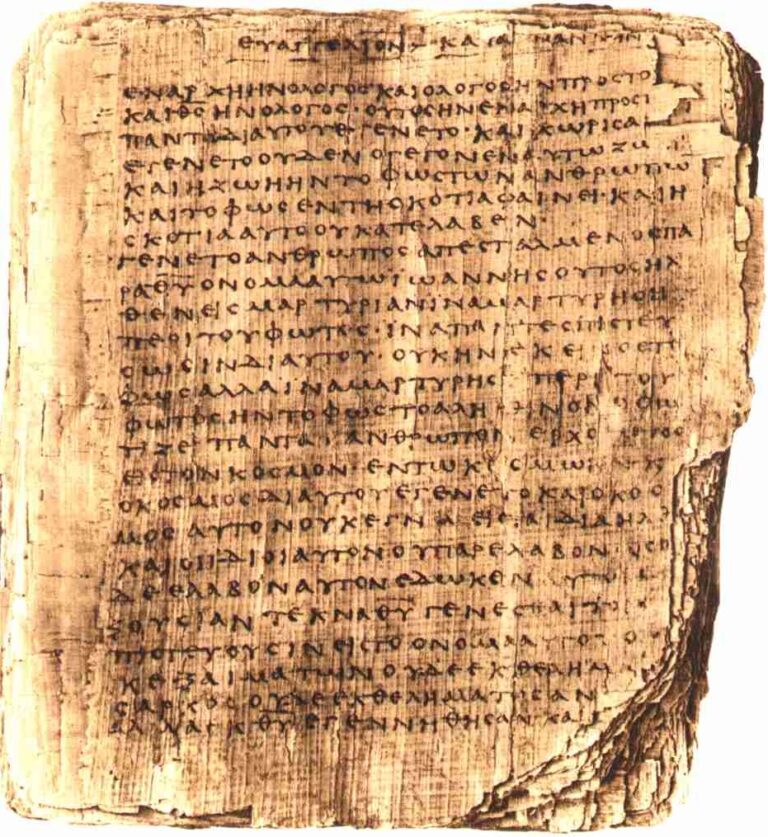 ΕΥΑΓΓΕΛΙΟΝ ΚΑΤΑ ΩΑΝΝΗΝ
ΕΝΑΡΧΗΗΝΟΛΟΓΟϹΚΑΙΟΛΟΓΟϹΗΝΠΡΟϹΤΟ
ΚΑΙΘ̅Ϲ̅ΗΝΟΛΟΓΟϹ·ΟΥΤΟϹΗΝΕΝΑΡΧΗΠΡΟϹΤ
ΠΑΝΤΑΔΙΑΥΤΟΥΕΓΕΝΕΤΟ·ΚΑΙΧΩΡΙϹΑ
ΕΓΕΝΕΤΟΟΥΔΕΝΟΓΕΓΟΝΕΝΑΥΤΩΖΩ
ΚΑΙΗΖΩΗΗΝΤΟΦΩϹΤΩΝΑΝΘΡΩΠΩ
ΚΑΙΤΟΦΩϹΕΝΤΗϹΚΟΤΙΑΦΑΙΝΕΙ·ΚΑΙΗ
ϹΚΟΤΙΑΑΥΤΟΟΥΚΑΤΕΛΑΒΕΝ·
ΓΕΝΕΤΟΑΝΘΡΩΠΟϹΑΠΕϹΤΑΛΜΕΝΟϹΠΑ
ΡΑΘ̅Υ̅ΟΝΟΜΑΑΥΤΩΙΩΑΝΝΗϹΟΥΤΟϹΗΛ
ΘΕΝΕΙϹΜΑΡΤΥΡΙΑΝΙΝΑΜΑΡΤΥΡΗϹΗ
ΠΕΡΙΤΟΥΦΩΤΟϹ·ΙΝΑΠΑΝΤΕϹΠΙϹΤΕΥ
ϹΩϹΙΝΔΙΑΥΤΟΥ·ΟΥΚΗΝΕΚΕΙΝΟϹΤΟ
ΦΩϹΑΛΛΑΙΝΑΜΑΡΤΥΡΗϹΗΠΕΡΙΤΟΥ
ΦΩΤΟϹΗΝΤΟΦΩϹΤΟΑΛΗΘΙΝΟΝΟΦΩ
ΤΙΖΕΙΠΑΝΤΑΑΝΘΡΩΠΟΝΕΡΧΟΜΕΝΟΝ
ΕΙϹΤΟΝΚΟϹΜΟΝ·ΕΝΤΩΚΟϹΜΩΗΝΚ
ΟΚΟϹΜΟϹΔΙΑΥΤΟΥΕΓΕΝΕΤΟΚΑΙΟΚΟϹ
ΜΟϹΑΥΤΟΝΟΥΚΕΓΝΩΕΙϹΤΑΙΔΙΑΗΛΘ
ΚΑΙΟΙΙΔΙΟΙΑΥΤΟΝΟΥΠΑΡΕΛΑΒΟΝ·ΟϹΟΙ
ΔΕΕΛΑΒΟΝΑΥΤΟΝΕΔΩΚΕΝΑΥΤΟΙ
ΞΟΥϹΙΑΝΤΕΚΝΑΘ̅Υ̅ΓΕΝΕϹΘΑΙΤΟΙϹ
ΠΙϹΤΕΥΟΥϹΙΝΕΙϹΤΟΟΝΟΜΑΑΥΤΟΥΟ
ΚΕΞΑΙΜΑΤΩΝΟΥΔΕΕΚΘΕΛΗΜΑ
ϹΑΡΚΟϹΟΥΔΕΕΚΘΕΛΗΜΑΤΟϹΑΝ
ΑΛΛΑΕΚΘ̅Υ̅ΕΓΕΝΝΗΘΗϹΑΝΚΑΙ